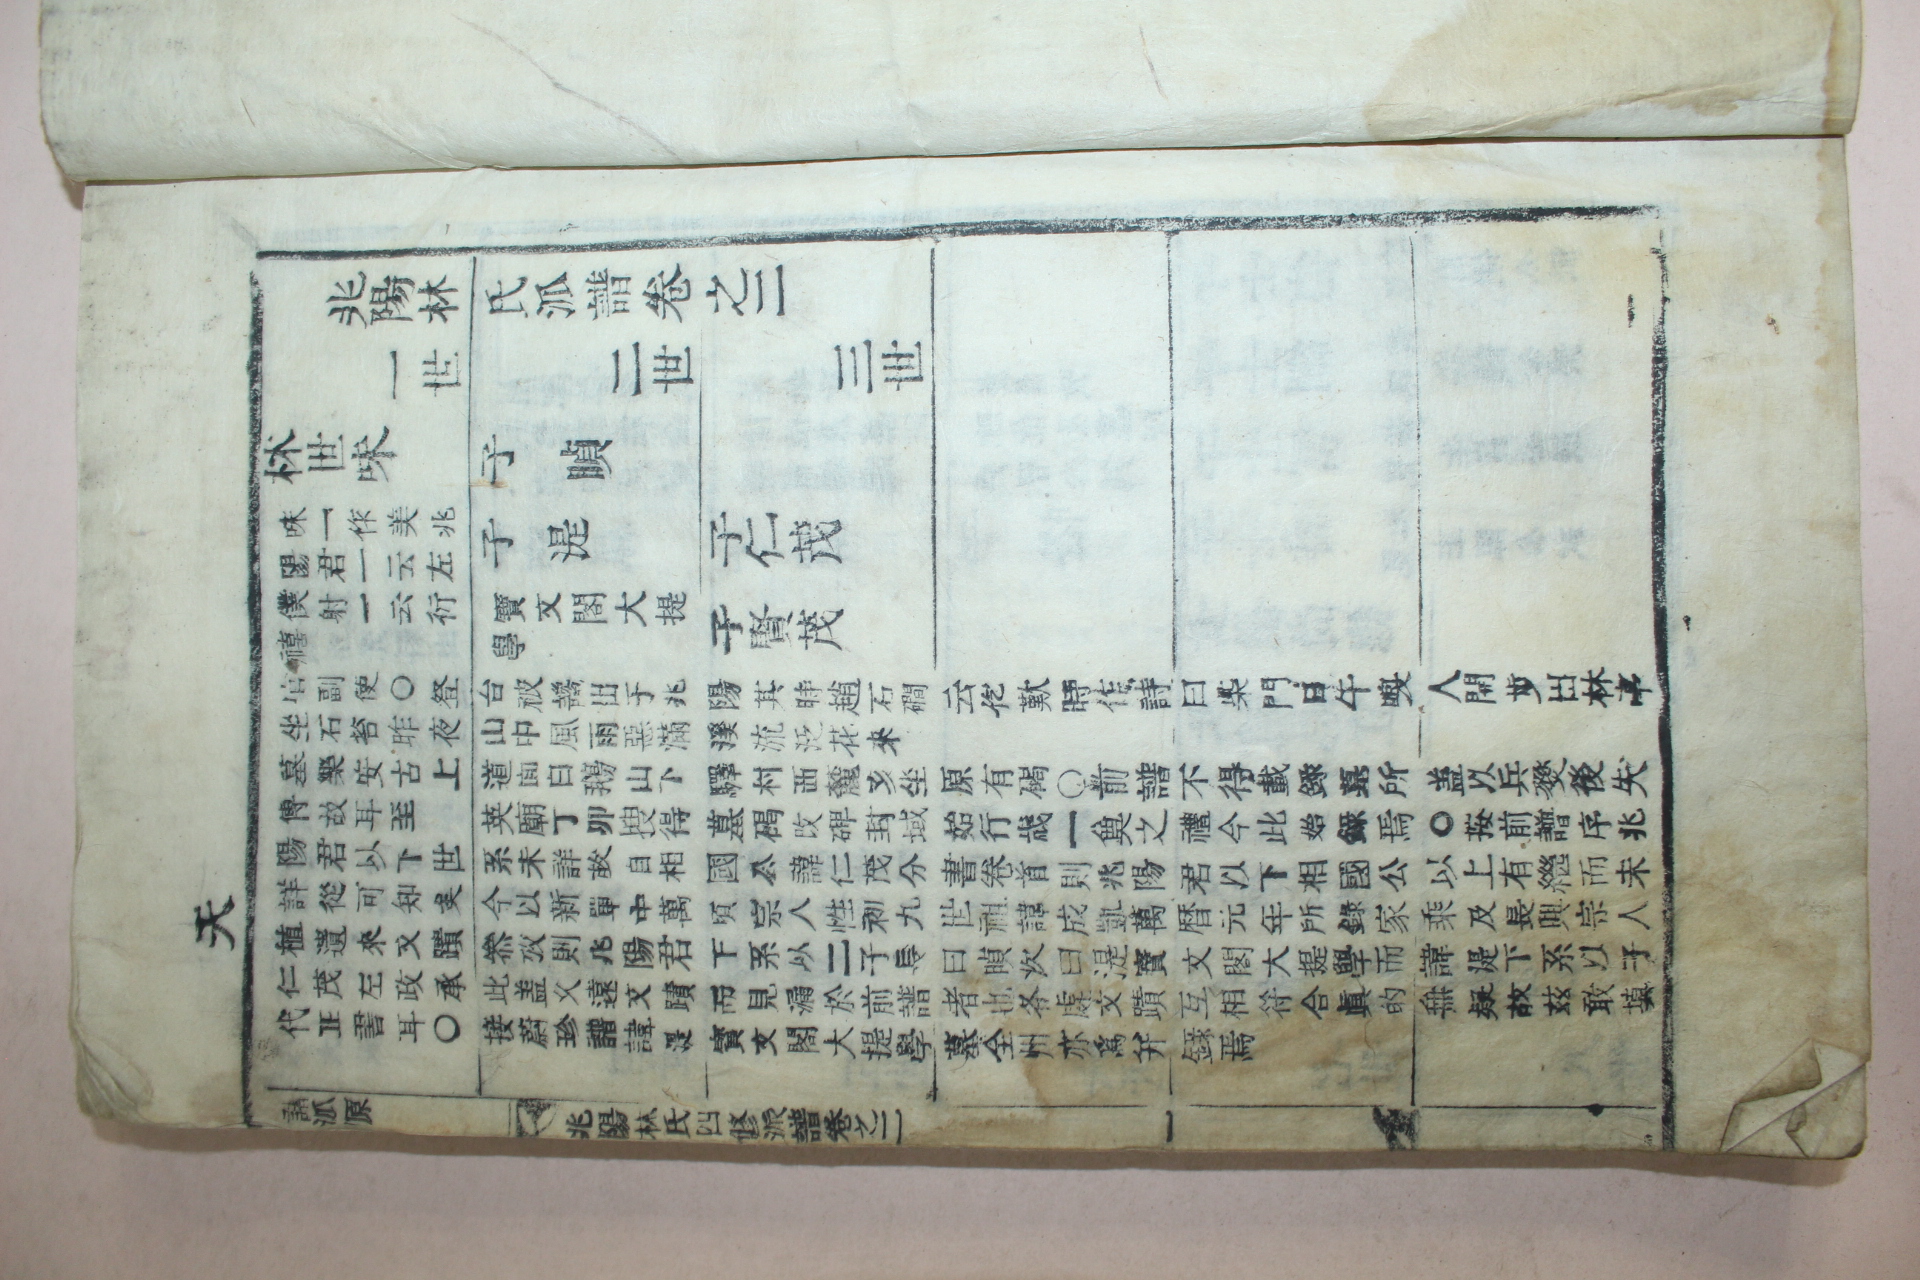 天
兆陽林氏派譜卷之二
一世
二世
三世
林世味
味一作美兆
陽君一云左
僕射一云衍
禧
子 䫆
子 湜
寶文閣大提
學
子仁茂
子賢茂
官副使〇登台被讒出于兆陽其時趙石磵云仡歎時作詩曰柴門日午喚人開步出林亭
坐石苔昨夜山中風雨惡滿溪流泛花來
墓樂安古上道面白鵝山下驛村西麓亥坐原有碣〇前譜不得載錄墓所盖以兵燹後失
傳故耳至英廟丁卯搜得墓碣改碑封域始行歲一奠之禮今此始錄焉〇按前譜序兆
陽君以下世系未詳故自相國公諱仁茂分書卷首則兆陽君以下相國公以上有繼而未
詳從可知矣今以新單中萬頃宗人性利九世祖諱成凱萬曆元年所錄家乘及長興宗人
植遺來文蹟叅攷則兆陽君下系以二子長曰䫆次曰湜寶文閣大提學而諱湜下系以子
仁茂左政承此盖久遠文蹟而見漏於前譜者也各處文蹟互相符合眞的無疑故玆敢塡
代正書耳〇接蔚珍譜諱湜寶文閣大提學墓全州亦爲弁錄焉
一
譜派原
兆陽林氏四修派譜卷之二
一